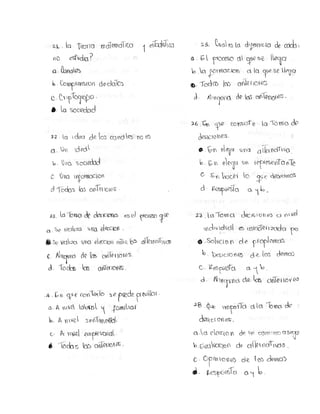 21. la Teoria matematica y estadistica
no estudia?
a. Canales
b. Compresion de datos.
c. Criptografia.
la sociedad
22. la idea de los canales no es
a. Un ideal
b. Una sociedad
c. Una informacion
d. Todas las anteriores
23. la Toma de decisiones es el proceso que
a. Se realiza una eleccion.
Se realiza una eleccion entre las alternativas
c. Ninguna de las anteriores.
d. Todas las anteriores.
24. En que contexto se puede
a. A nivel laboral y familiar
b. A nivel sentimental
c. A nivel empresarial.
Todas las anteriores.
25. Cual es la diferencia de cada:
a. El proceso al que se llega
b. la formacion a la que se llega
Todas las anteriores
d. Ninguna de las anteriores.
26. En que consiste la Toma de
desiciones.
En elegir una alternativa
b. En elegir un representante
c. En hacer lo que decimos
d. Respuesta a y b.
27. la Toma desiciones a nivel
individual es caracterizada por
a. Solucion de problemas.
b. Desiciones de los demas
c. Respuesta a y b.
d. Ninguna de las anteriores
28. Que importa a la Toma de
desiciones.
a. la eleccion de un camino a seguir
b. Evaluacion de alternativas.
c. Opiniones de los demas
Respuesta a y b.